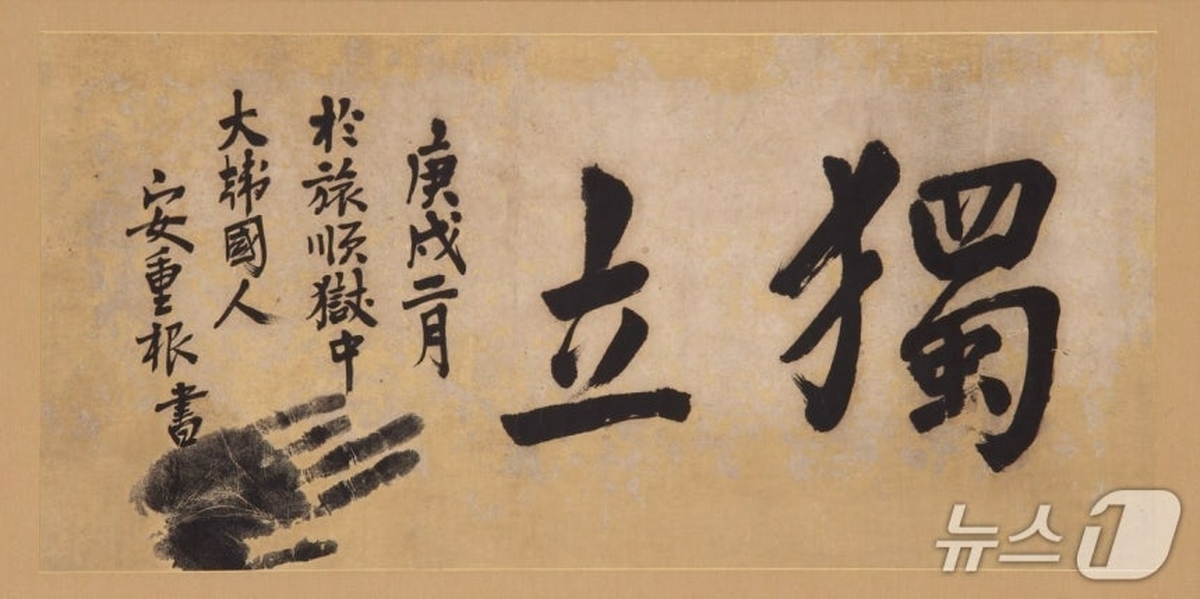 獨立
庚戌二月
於旅順獄中
大韓國人
安重根書
뉴스1